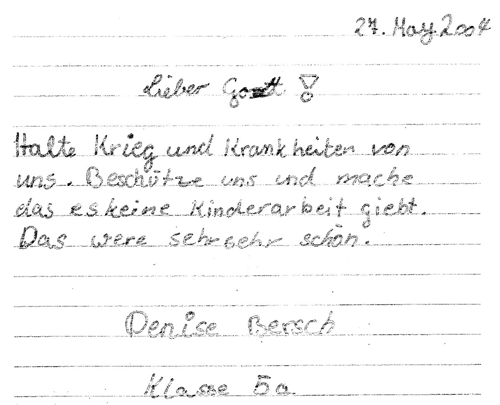 27. May 2004
Lieber Gott !
Halte Krieg und Krankheiten von
uns. Beschütze uns und mache
das es keine Kinderarbeit giebt.
Das were sehr sehr schön.
Denise Bersch
Klasse 5a